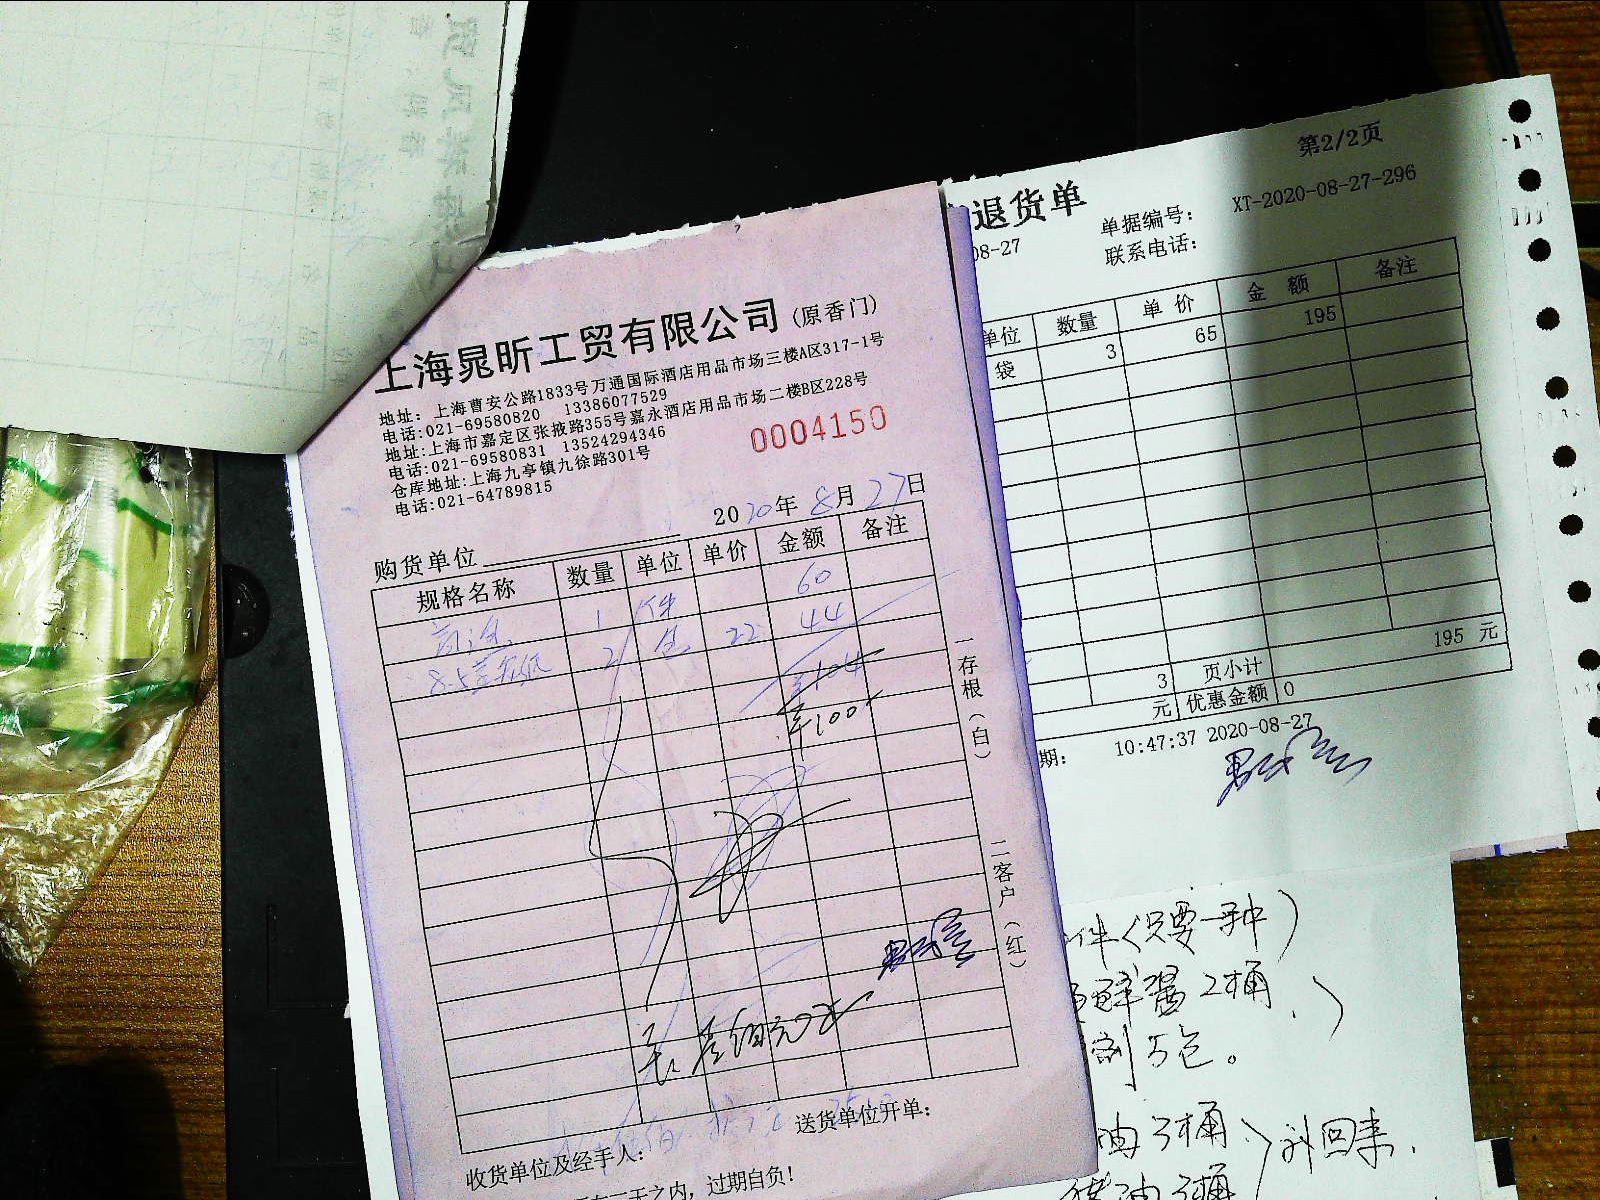 上海晁昕工贸有限公司(原香门)
地址：上海曹安公路1833号万通国际酒店用品市场三楼A区317-1号
电话:021-69580820 13386077529
地址:上海市嘉定区张掖路355号嘉永酒店用品市场二楼B区228号
电话:021-69580831 13524294346
仓库地址:上海九亭镇九徐路301号
电话:021-64789815
0004150
2020年8月27日
购货单位
规格名称 数量 单位 单价 金额 备注
1 件 60
2 包 22 44
¥104
¥100
一存根(白)
二客户(红)
送货单位开单:
收货单位及经手人:
天之内，过期自负!
第2/2页
退货单
单据编号: XT-2020-08-27-296
08-27
联系电话:
单位 数量 单价 金额 备注
袋 3 65 195
195 元
3 页小计
元 优惠金额 0
期: 10:47:37 2020-08-27
件(只要一种)
鲜酱2桶
剂5包。
油3桶
油3桶